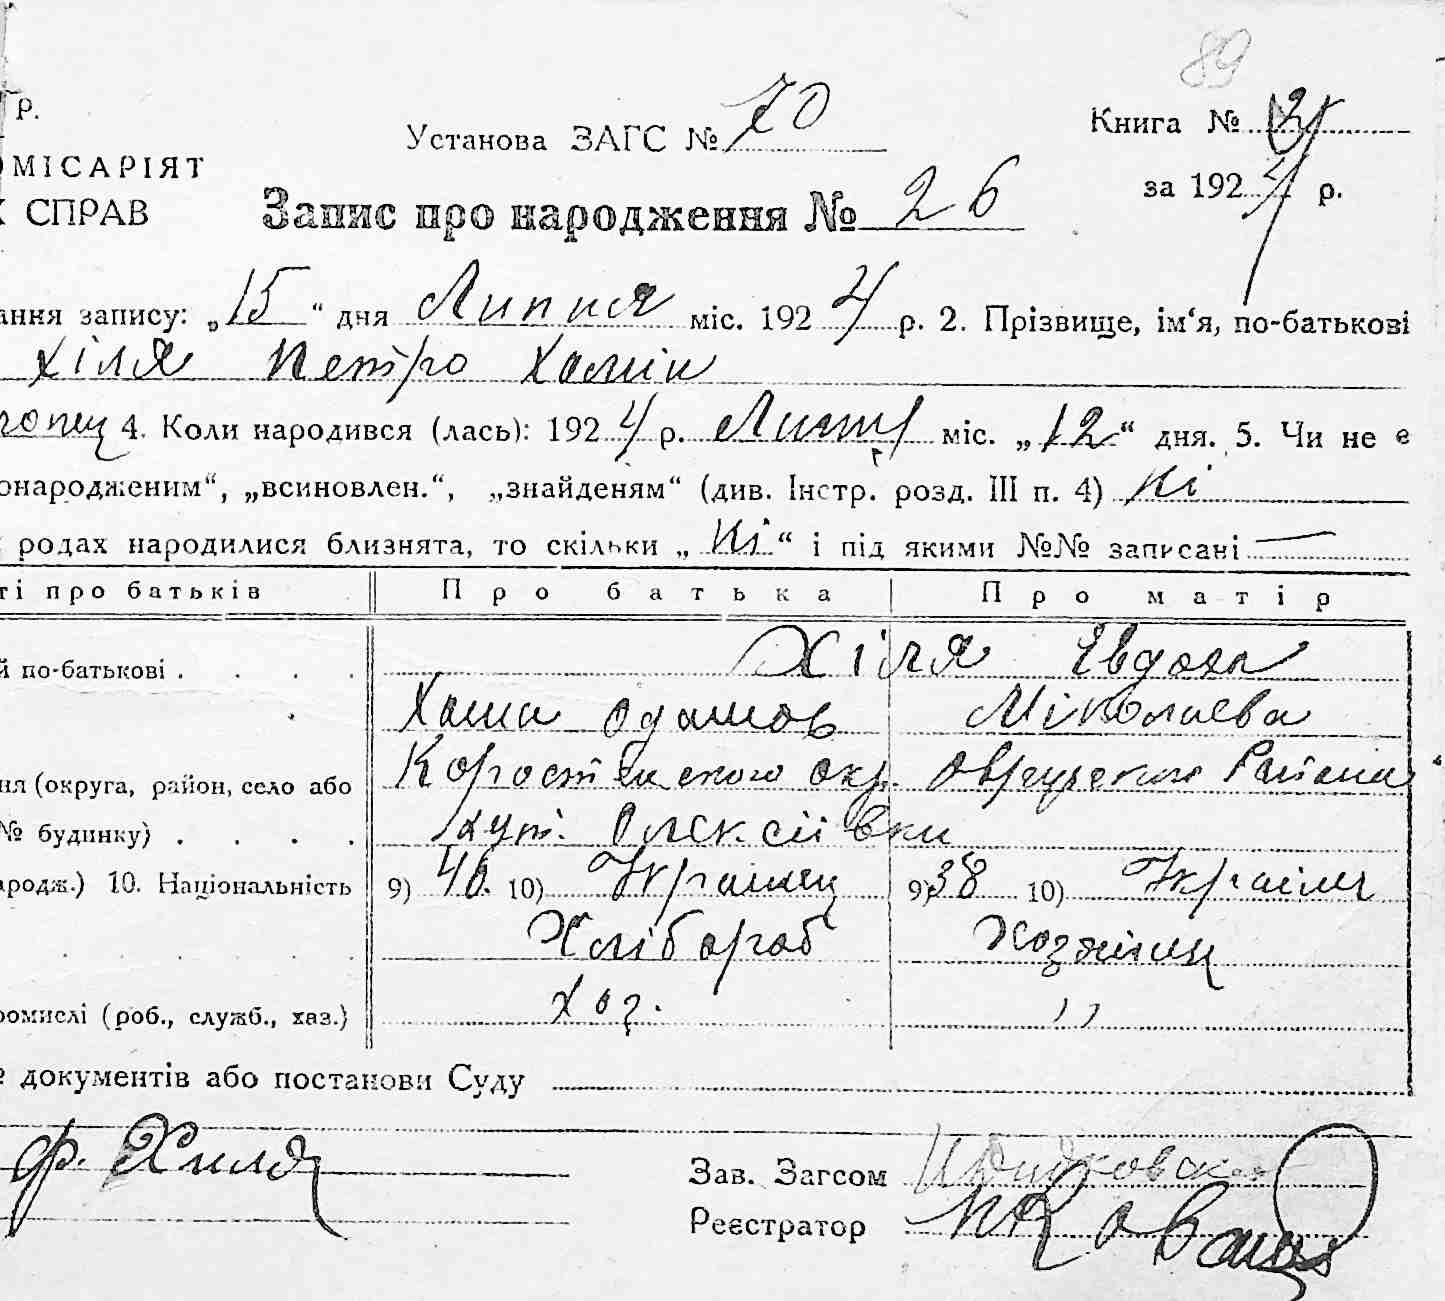 89
Р.
Установа ЗАГС № 70
Книга № 2
ОМІСАРІЯТ
за 1924 р.
СПРАВ
Запис про народження № 26
ання запису: „15“ дня Липня міс. 1924 р. 2. Прізвище, ім‘я, по-батькові
Хіля Петро Хомін
хлопец 4. Коли народився (лась): 1924 р. міс. „12“ дня. 5. Чи не є
онародженим“, „всиновлен.“, „знайденям“ (див. Інстр. розд. III п. 4) Ні
родах народилися близнята, то скільки „Ні“ і під якими №№ записані —
ті про батьків Про батька Про матір
й по-батькові . . . . Хіля Евдоха
Хома Одамов Міколаева
ня (округа, район, село або Коростенского окр. Овруцкого Района
№ будинку) . . . . хут. Олексіївки
ародж.) 10. Національність 9) 40. 10) Украінец 9) 38 10)
Хлібороб
омислі (роб., служб., хаз.) хоз. "
документів або постанови Суду
ф. Хиля
Зав. Загсом
Реєстратор